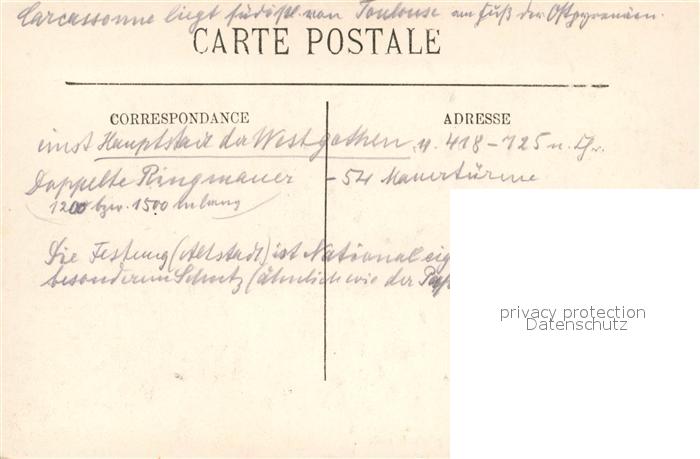 Carcassonne liegt südöstl. von Toulouse am Fuß der Ostpyrenäen.
CARTE POSTALE
CORRESPONDANCE
ADRESSE
einst Hauptstadt der Westgothen v. 418-725 n. Chr.
Doppelte Ringmauer - 54 Mauertürme
1200 bzw. 1500 m lang
Die Festung (Altstadt) ist National
besonderem Schutz (ähnlich wie der
privacy protection
Datenschutz